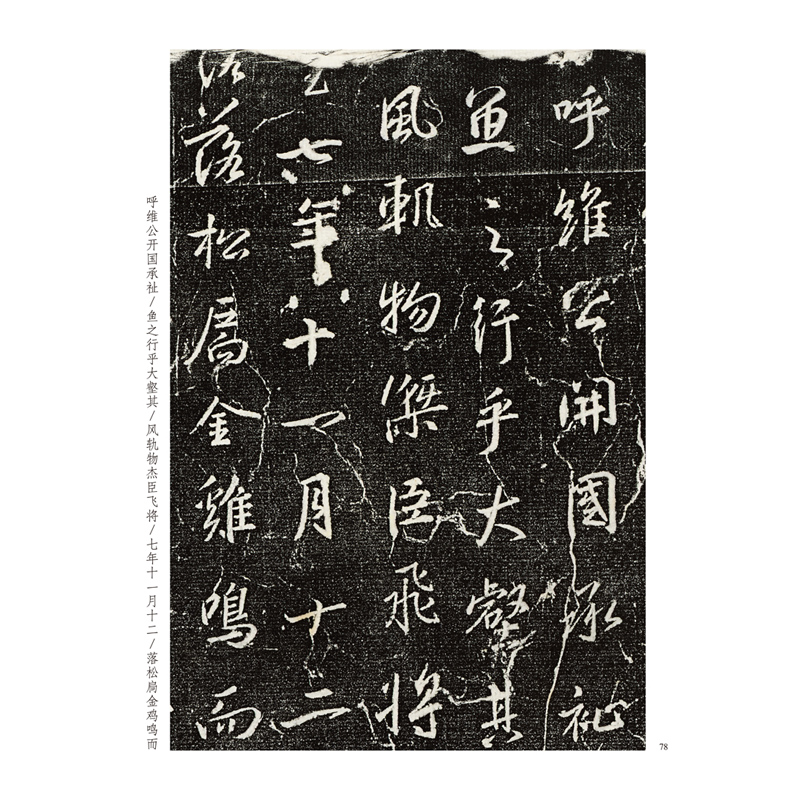 呼維公開國承祉
魚之行乎大壑其
風軌物傑臣飛將
七年十一月十二
落松扃金雞鳴而
呼维公开国承祉/鱼之行乎大壑其/风轨物杰臣飞将/七年十一月十二/落松扃金鸡鸣而
78